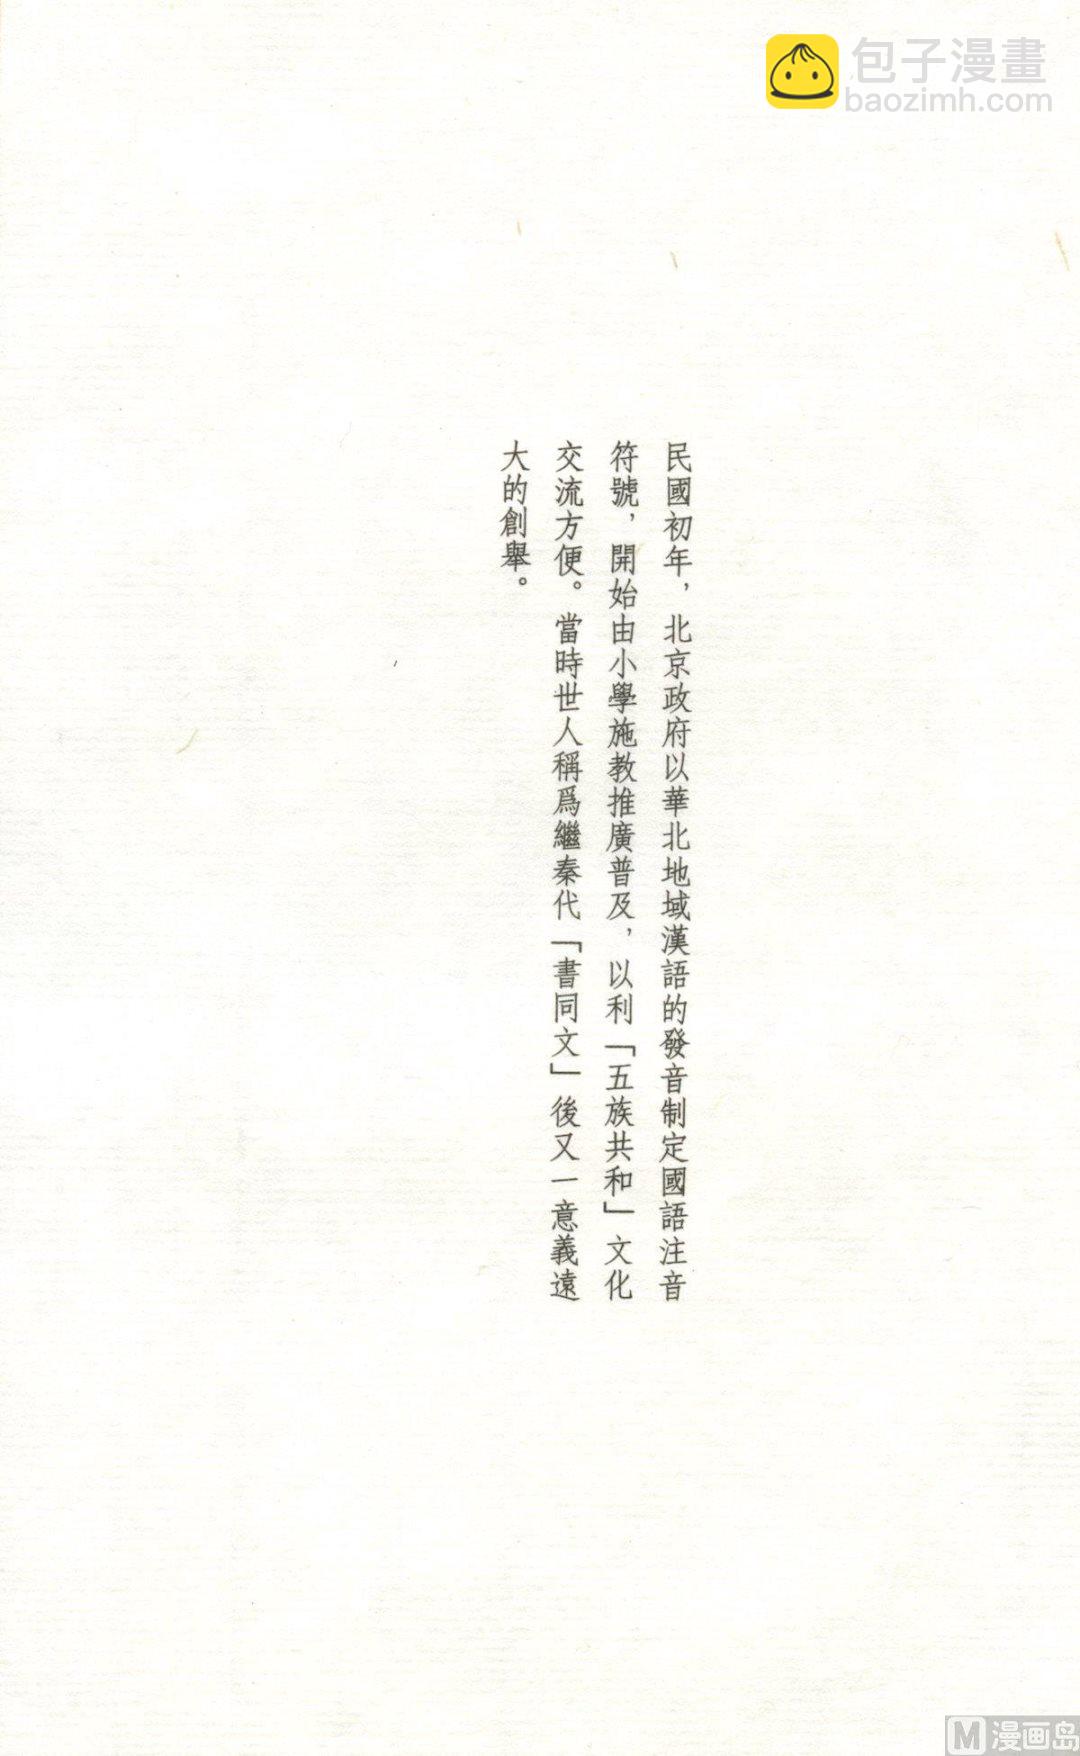 包子漫畫
baozimh.com
民國初年，北京政府以華北地域漢語的發音制定國語注音
符號，開始由小學施教推廣普及，以利「五族共和」文化
交流方便。當時世人稱爲繼秦代「書同文」後又一意義遠
大的創舉。
M漫画岛